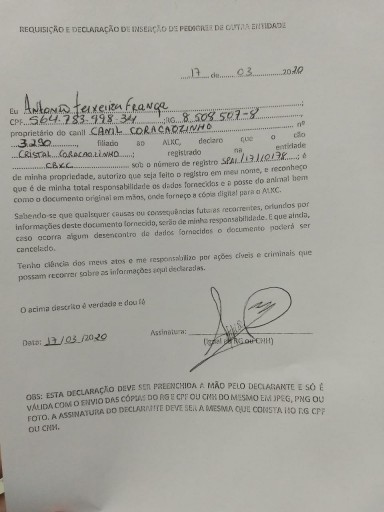 REQUISIÇÃO E DECLARAÇÃO DE INSERÇÃO DE PEDIGREE DE OUTRA ENTIDADE
17 de 03 2020
Eu Antonio Teixeira França
CPF 564.783.998-34 ;RG 8 508 507-8
proprietário do canil CANIL CORACAOZINHO nº
3.290, filiado ao ALKC, declaro que o cão
CRISTAL CORACAOZINHO, registrado na entidade
CBKC sob o número de registro SPAI/17/10178; é
de minha propriedade, autorizo que seja feito o registro em meu nome, e reconheço
que é de minha total responsabilidade os dados fornecidos e a posse do animal bem
como o documento original em mãos, onde forneço a cópia digital para o ALKC.
Sabendo-se que quaisquer causas ou consequências futuras recorrentes, oriundos por
informações deste documento fornecido, serão de minha responsabilidade. E que ainda,
caso ocorra algum desencontro de dados fornecidos o documento poderá ser
cancelado.
Tenho ciência dos meus atos e me responsabilizo por ações cíveis e criminais que
possam recorrer sobre as informações aqui declaradas.
O acima descrito é verdade e dou fé
Assinatura:
(igual do RG ou CNH)
Data: 17/03/2020
OBS: ESTA DECLARAÇÃO DEVE SER PREENCHIDA A MÃO PELO DECLARANTE E SÓ É
VÁLIDA COM O ENVIO DAS CÓPIAS DO RG E CPF OU CNH DO MESMO EM JPEG, PNG OU
FOTO. A ASSINATURA DO DECLARANTE DEVE SER A MESMA QUE CONSTA NO RG CPF
OU CNH.